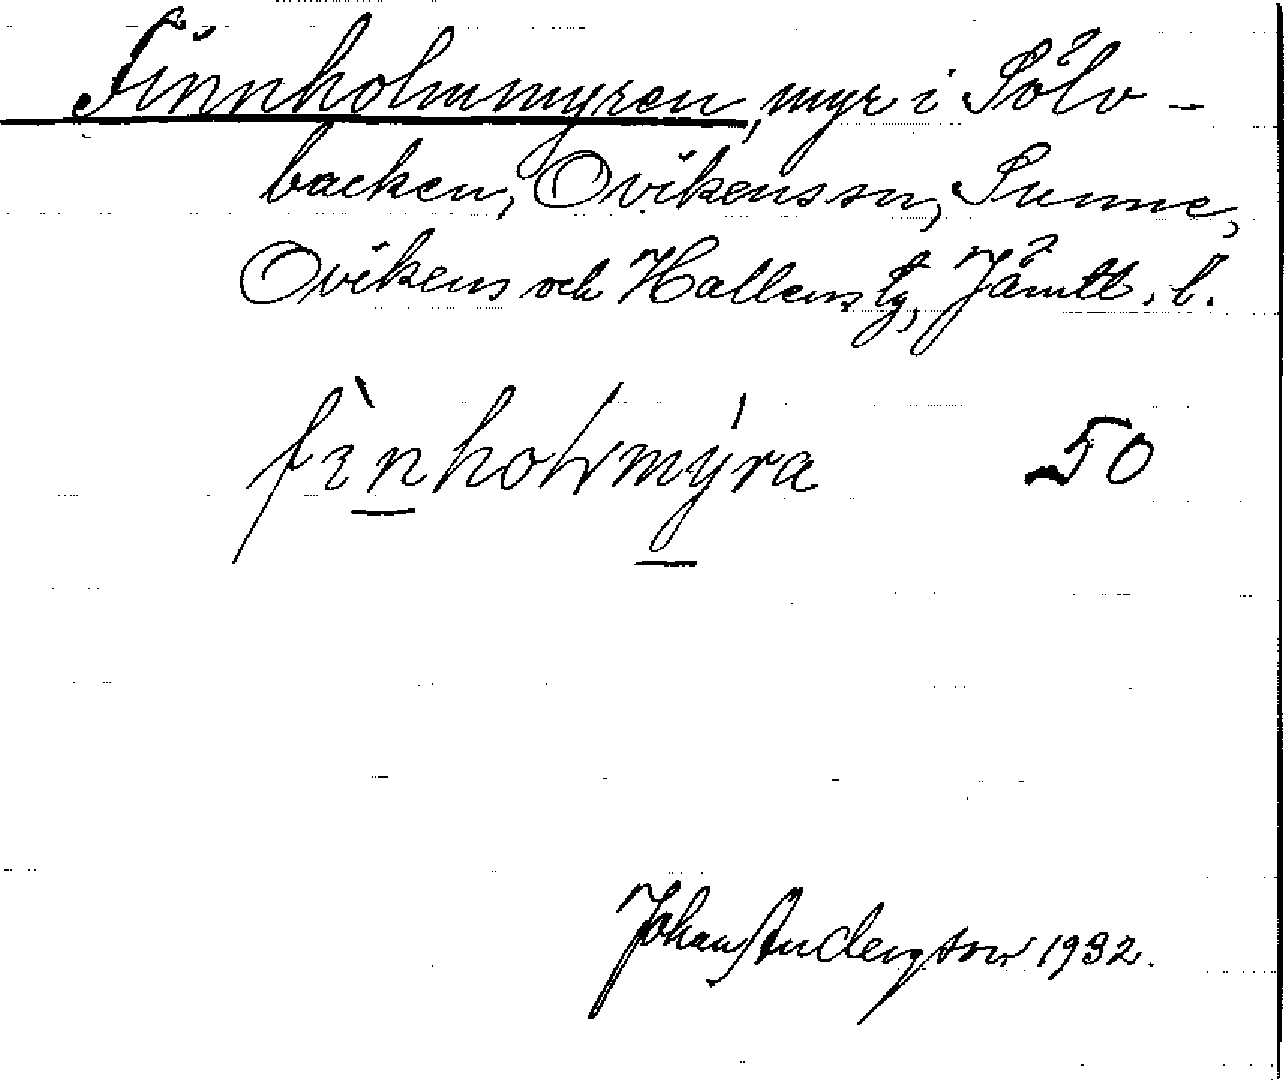 Finnholmmyren, myr i Sölv-
backen, Ovikens sn, Sunne,
Ovikens och Hallens tg, Jämtl. l.
fìnholmmýra 50
Johan Anderson 1932.